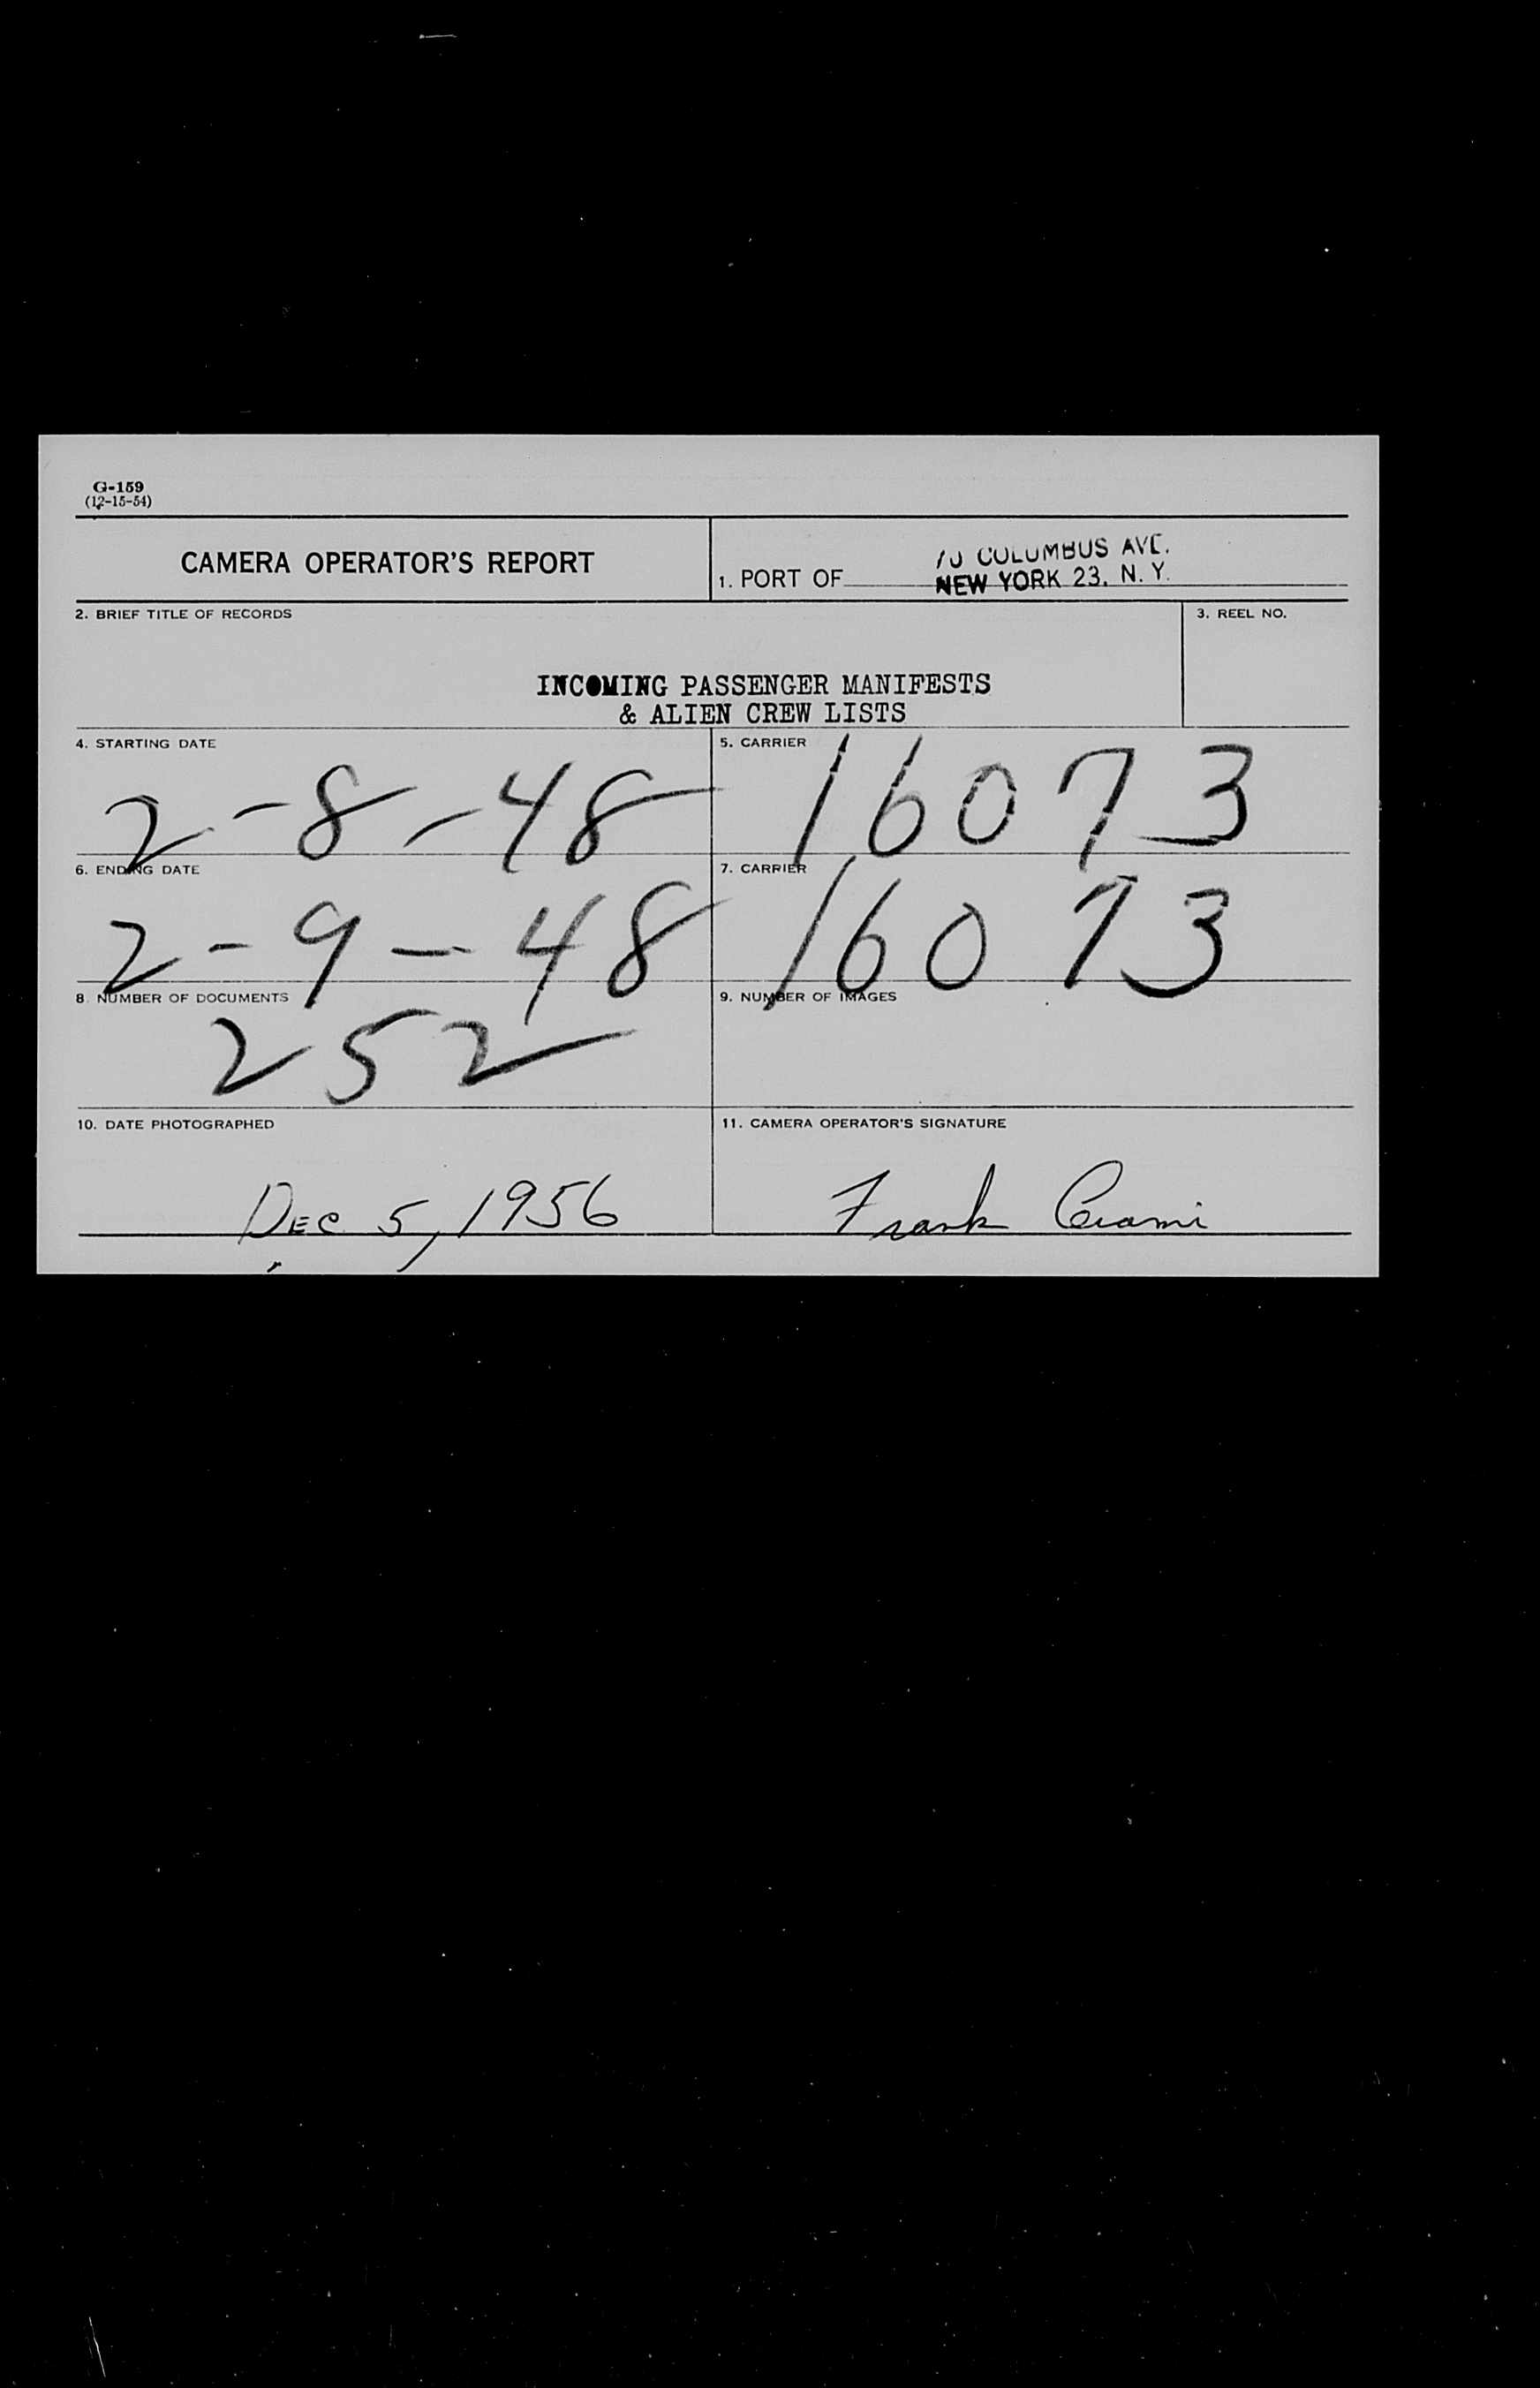 G-159
(12-15-54)
CAMERA OPERATOR'S REPORT
1. PORT OF
70 COLUMBUS AVE.
NEW YORK 23, N. Y.
2. BRIEF TITLE OF RECORDS
3. REEL NO.
INCOMING PASSENGER MANIFESTS
& ALIEN CREW LISTS
4. STARTING DATE
2-8-48
5. CARRIER
16073
6. ENDING DATE
2-9-48
7. CARRIER
16073
8. NUMBER OF DOCUMENTS
252
9. NUMBER OF IMAGES
10. DATE PHOTOGRAPHED
DEC 5, 1956
11. CAMERA OPERATOR'S SIGNATURE
Frank